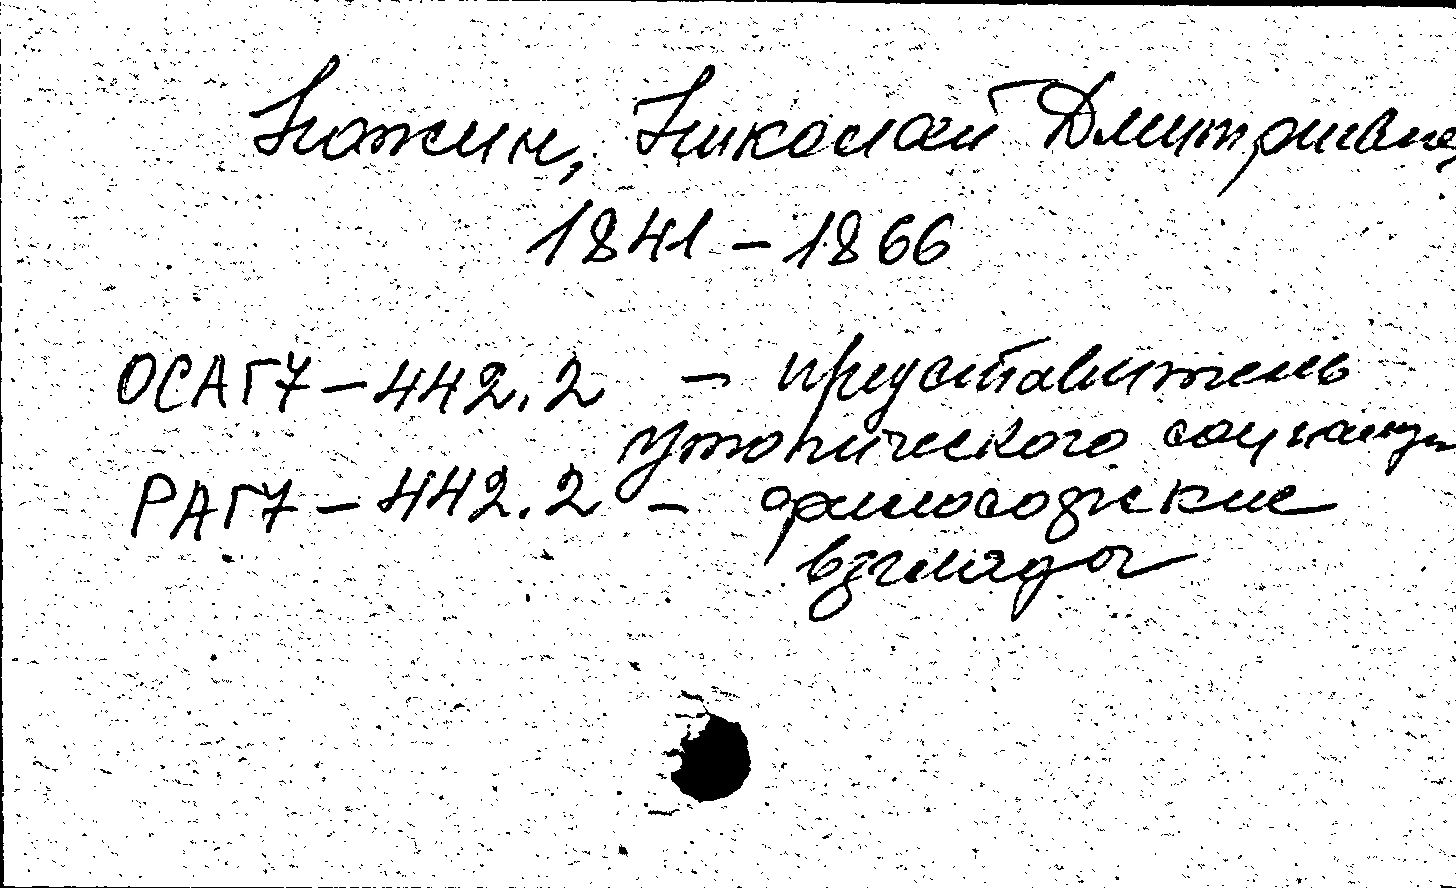 Ножин, Николай Дмитриевич
1841 – 1866
ОСАГ7 – 442.2 – представитель
утопического социализм
РАГ7 – 442.2 – философские
взгляды